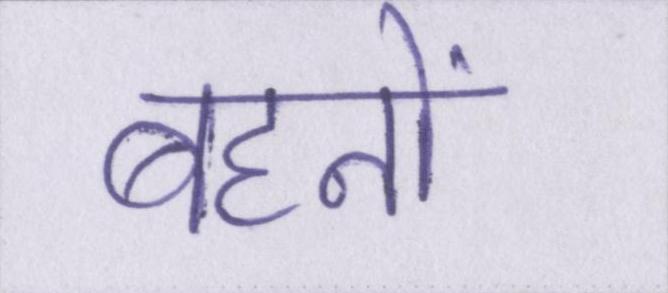 बहनों